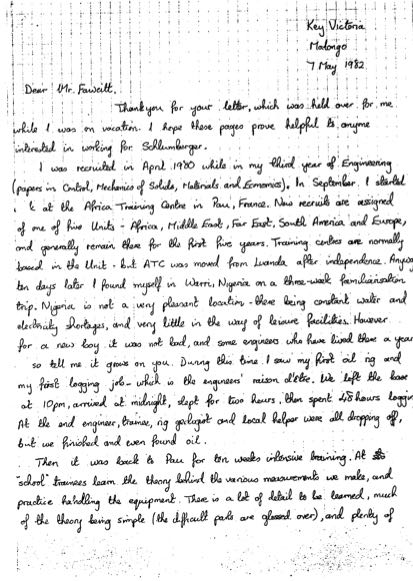 Key Victoria
Malongo
7 May 1982
Dear Mr. Fawcitt,
Thankyou for your letter, which was held over for me
while I was on vacation. I hope these pages prove helpful to anyone
interested in working for Schlumberger.
I was recruited in April 1980 while in my third year of Engineering
(papers in Control, Mechanics of Solids, Materials and Economics). In September I started
at the Africa Training Centre in Pau, France. New recruits are assigned
of one of five Units - Africa, Middle East, Far East, South America and Europe,
and generally remain there for the first five years. Training centres are normally
based in the Unit - but ATC was moved from Luanda after independence. Anyway
ten days later I found myself in Warri, Nigeria on a three-week familiarisation
trip. Nigeria is not a very pleasant location - there being constant water and
electricity shortages, and very little in the way of leisure facilities. However
for a new boy it was not bad, and some engineers who have lived there a year
so tell me it grows on you. During this time I saw my first oil rig and
my first logging job - which is the engineers' raison d'être. We left the base
at 10pm, arrived at midnight, slept for two hours, then spent 48 hours loggin
At the end engineer, trainee, rig geologist and local helper were all dropping off,
but we finished and even found oil.
Then it was back to Pau for ten weeks intensive training. At
"school" trainees learn the theory behind the various measurements we make, and
practice handling the equipment. There is a lot of detail to be learned, much
of the theory being simple (the difficult parts are glossed over), and plenty of